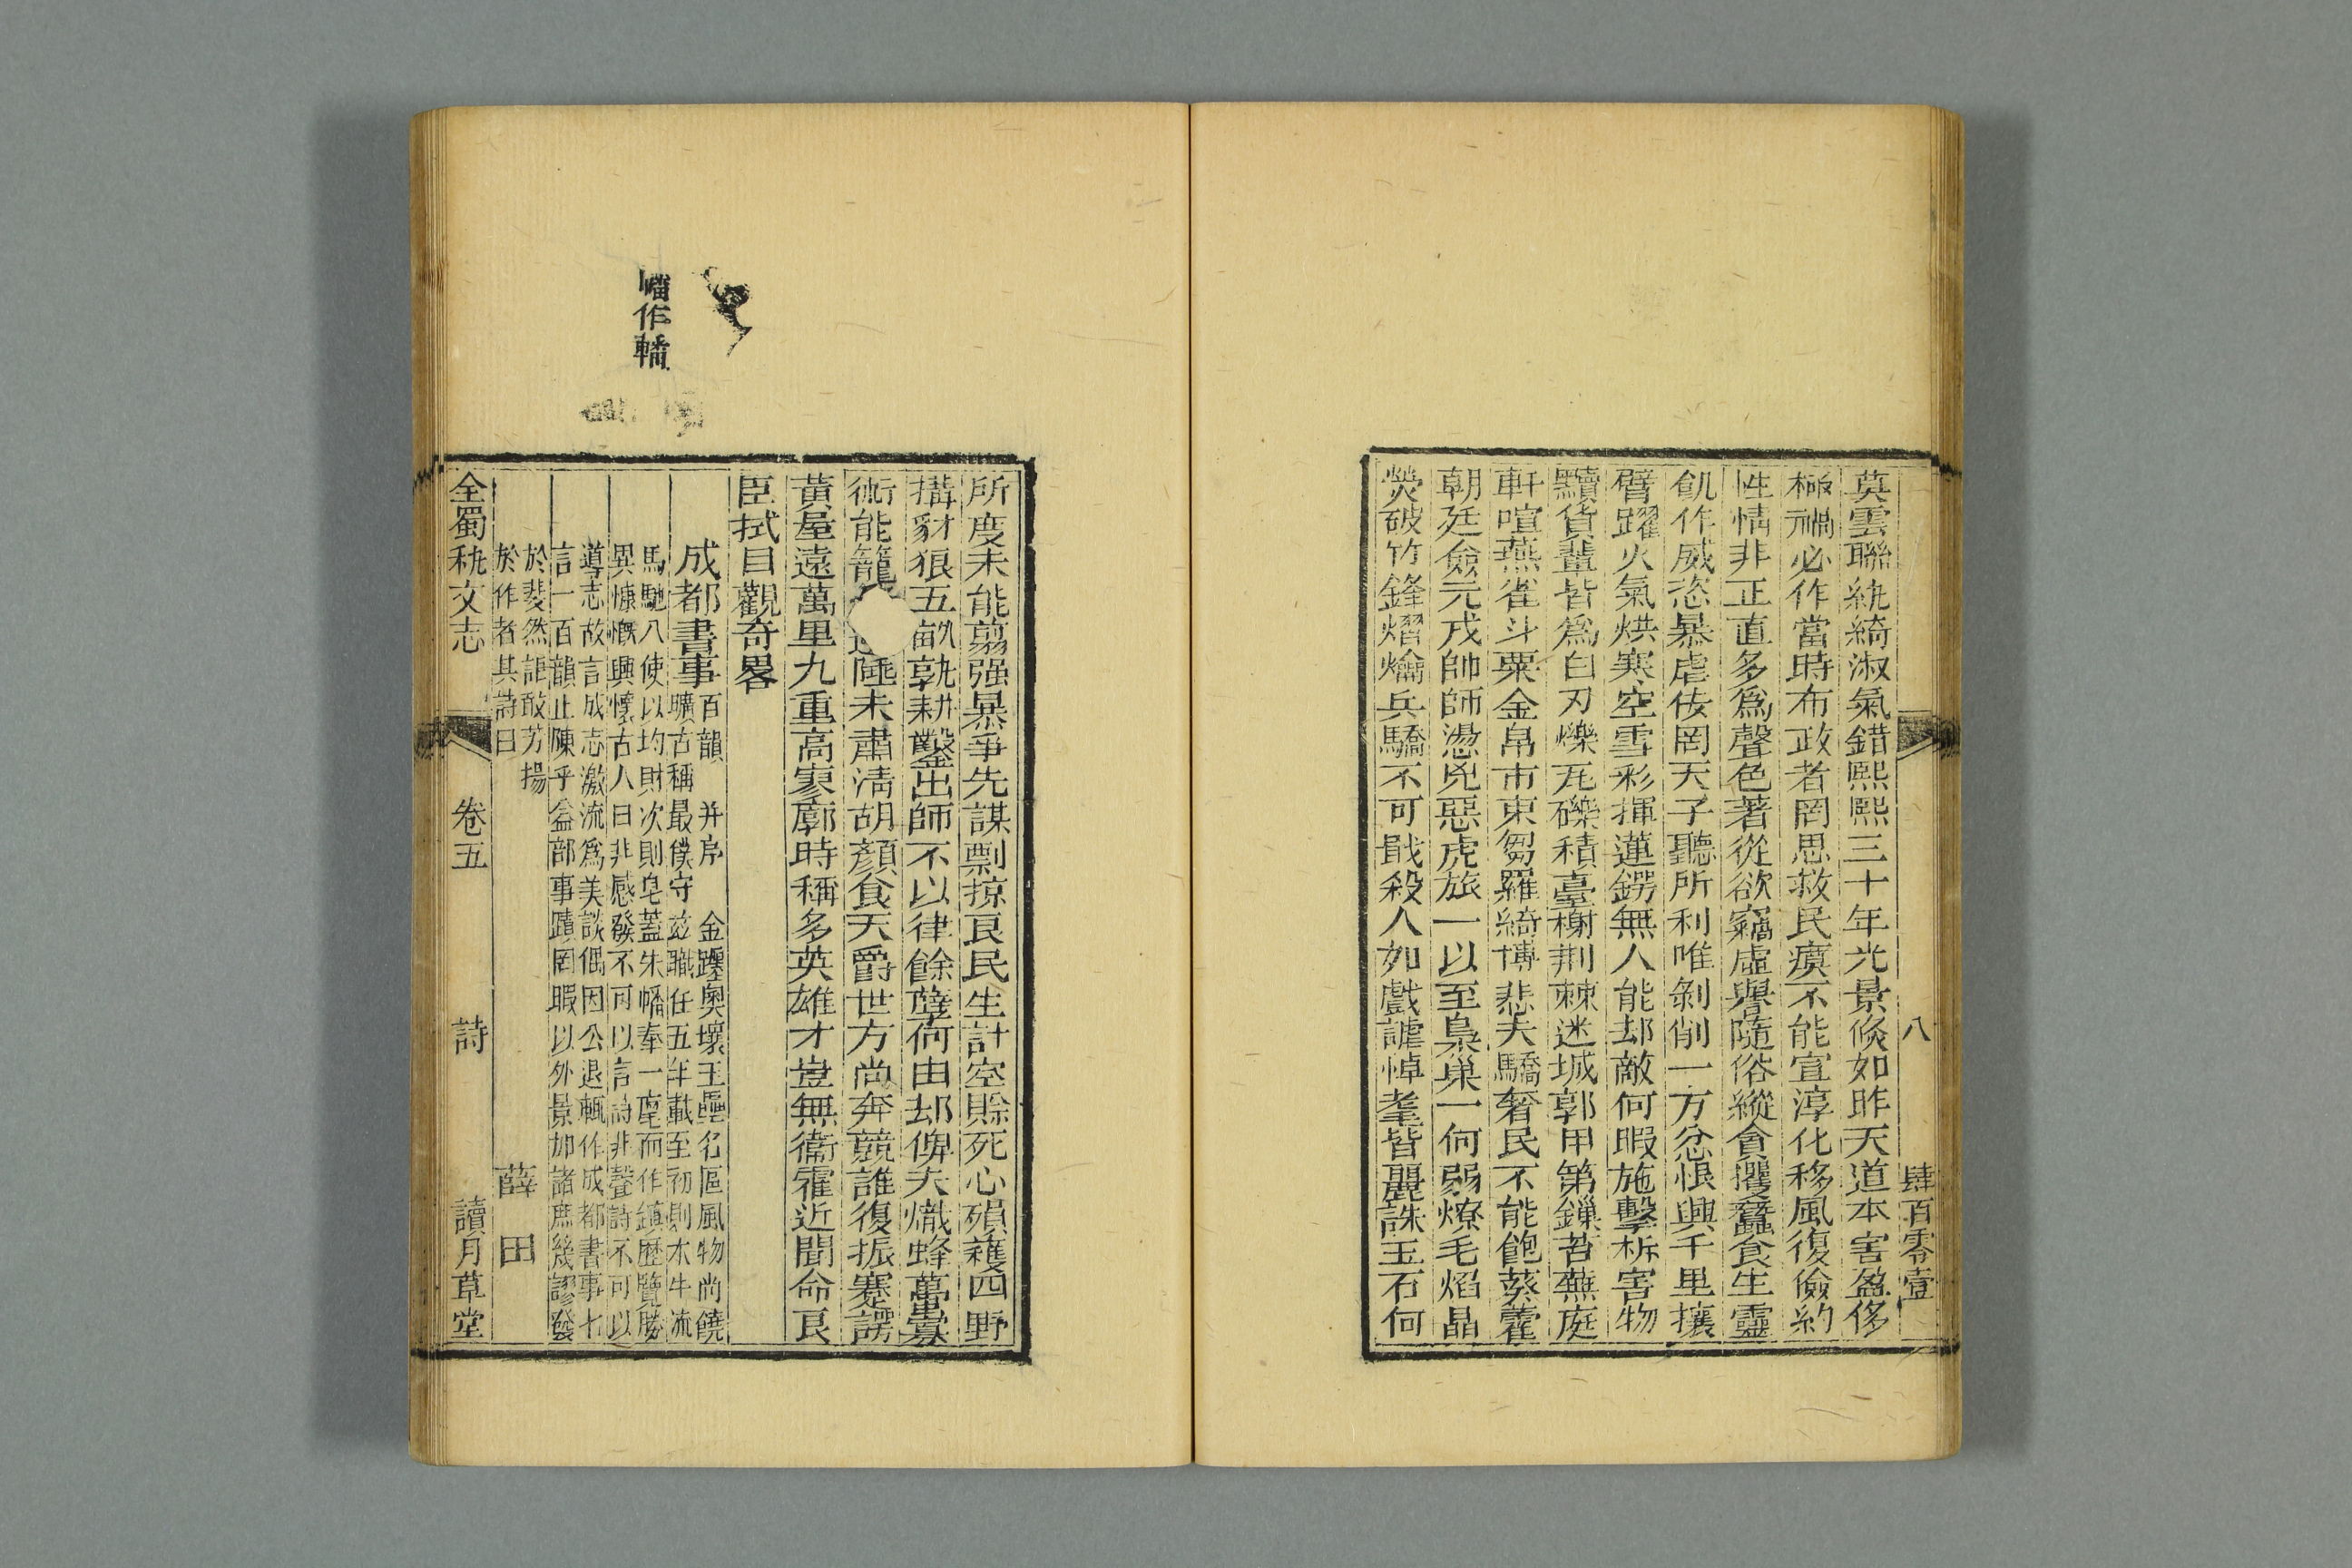 八　肆百零壹
莫雲聯紈綺淑氣錯熙熙三十年光景倐如昨天道本害盈侈
極禍必作當時布政者罔思救民瘼不能宣淳化移風復儉約
性情非正直多爲聲色著從欲竊虛譽隨俗縱貪攫蠶食生靈
飢作威恣暴虐侫罔天子聽所利唯剝削一方忿恨興千里攘
臂躍火氣烘寒空雪彩揮蓮鍔無人能却敵何暇施擊柝害物
黷貨輩皆爲白刃爍瓦礫積臺榭荆棘迷城郭甲第鏁苔蕪庭
軒喧燕雀斗粟金帛市束芻羅綺博悲夫驕奢民不能飽葵藿
朝廷儉元戎帥師盪兇惡虎旅一以至梟巢一何弱燎毛焰晶
熒破竹鋒熠爚兵驕不可戢殺人如戲謔悼耄皆麗誅玉石何
所度未能翦强暴爭先謀剽掠良民生計空賒死心殞穫四野
搆豺狼五畝孰耕鑿出師不以律餘孽何由却俾夫熾蜂蠆蠹
術能籠陲未肅淸胡顏食天爵世方尚奔競誰復振蹇諤
黃屋遠萬里九重高寥廓時稱多英雄才豈無衞霍近聞命良
臣拭目觀奇畧
幡作轓
成都書事百韻　并序
金躔奧壤玉壘名區風物尚饒
曠古稱最僕守兹職任五年載至初則木牛流
馬馳八使以均財次則皂蓋朱幡奉一麾而作鎭歷覽勝
異慷慨興懷古人曰非感發不可以言詩非聲詩不可以
導志故言成志激流爲美談偶因公退輒作成都書事七
言一百韻止陳乎益部事蹟罔暇以外景加諸庶幾謬發
於斐然詎敢芳揚
於作者其詩曰
薛田
全蜀秇文志　卷五　詩　讀月草堂